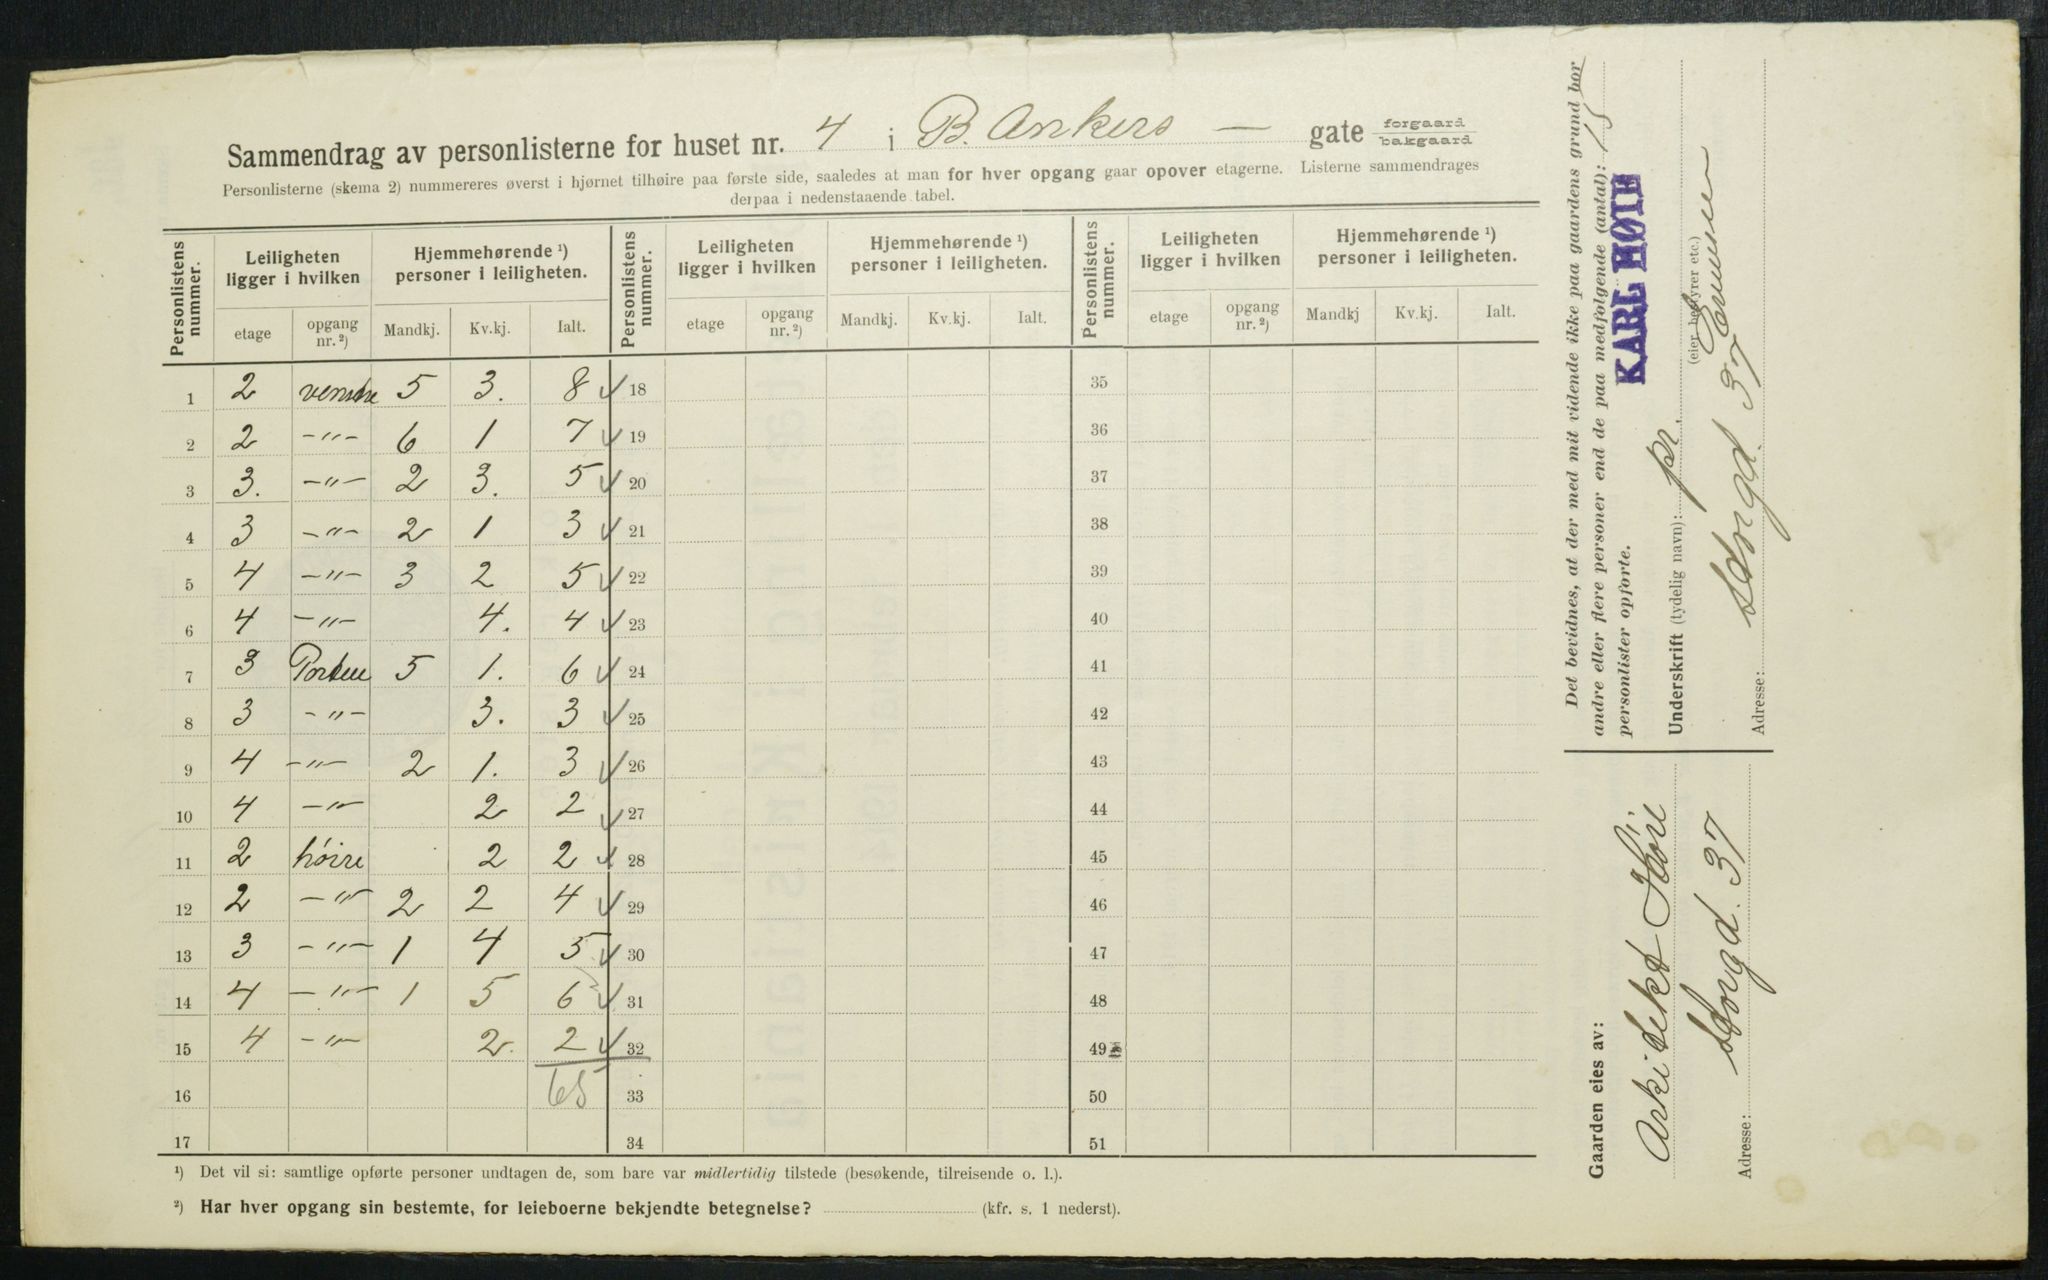 Sammendrag av personlisterne for huset nr. 4 i B. Ankers — gate forgaard bakgaard
Personlisterne (skema 2) nummereres øverst i hjørnet tilhøire paa første side, saaledes at man for hver opgang gaar opover etagerne. Listerne sammendrages
derpaa i nedenstaaende tabel.
Personlistens nummer. Leiligheten ligger i hvilken Hjemmehørende ¹) personer i leiligheten. Personlistens nummer. Leiligheten ligger i hvilken Hjemmehørende ¹) personer i leiligheten. Personlistens nummer. Leiligheten ligger i hvilken Hjemmehørende ¹) personer i leiligheten.
etage opgang nr. ²) Mandkj. Kv.kj. Ialt. etage opgang nr. ²) Mandkj. Kv.kj. Ialt. etage opgang nr. ²) Mandkj Kv.kj. Ialt.
1 2 venstre 5 3. 8 ✓ 18 35
2 2 -"- 6 1 7 ✓ 19 36
3 3. -"- 2 3. 5 ✓ 20 37
4 3 -"- 2 1 3 ✓ 21 38
5 4 -"- 3 2 5 ✓ 22 39
6 4 -"- 4. 4 ✓ 23 40
7 3 Porten 5 1. 6 ✓ 24 41
8 3 -"- 3. 3 ✓ 25 42
9 4 -"- 2 1. 3 ✓ 26 43
10 4 -"- 2 2 ✓ 27 44
11 2 høire 2 2 ✓ 28 45
12 2 -"- 2 2 4 ✓ 29 46
13 3 -"- 1 4 5 ✓ 30 47
14 4 -"- 1 5 6 ✓ 31 48
15 4 -"- 2. 2 ✓ 32 49
16 65 33 50
17 34 51
¹) Det vil si: samtlige opførte personer undtagen de, som bare var midlertidig tilstede (besøkende, tilreisende o. l.).
²) Har hver opgang sin bestemte, for leieboerne bekjendte betegnelse? (kfr. s. 1 nederst).
Det bevidnes, at der med mit vidende ikke paa gaardens grund bor
andre eller flere personer end de paa medfølgende (antal): 15
personlister opførte.
KARL HØIE
Underskrift (tydelig navn): pr.
(eier, bestyrer etc.)
Adresse: Storgd. 37
Gaarden eies av:
Arkitekt Høie
Adresse: Storgd. 37